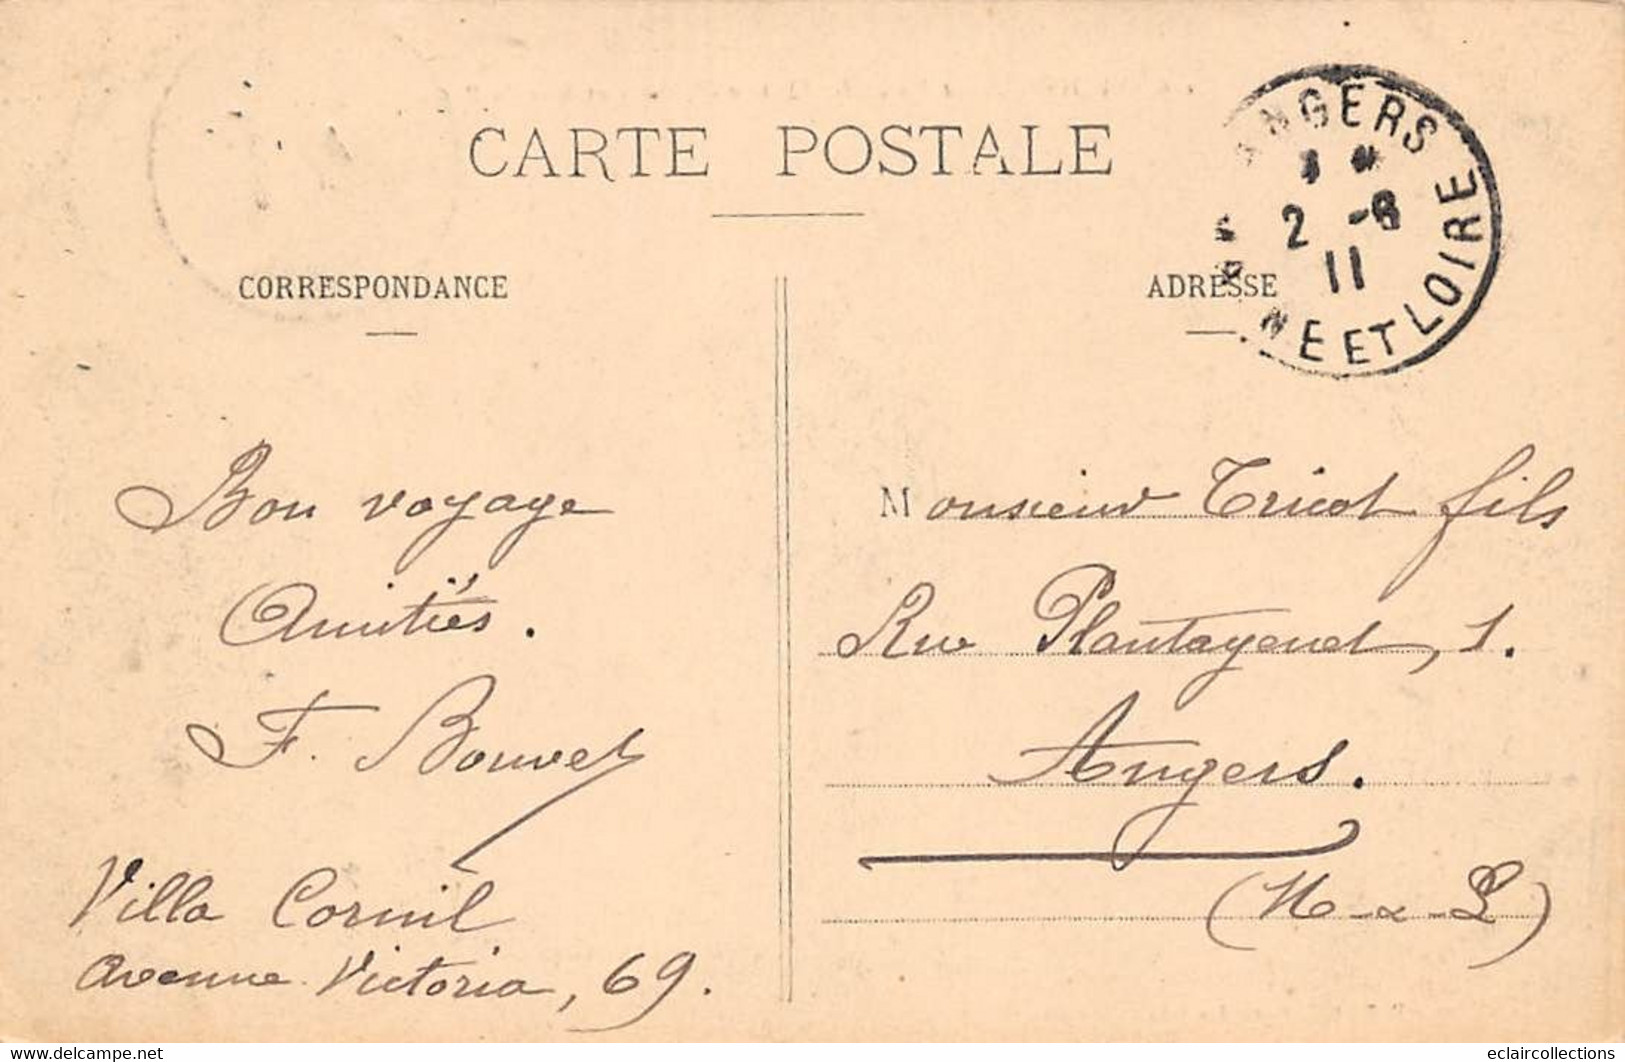 CARTE POSTALE
ANGERS
2 -6
11
NE ET LOIRE
CORRESPONDANCE
ADRESSE
Bon voyage
Amitiés.
F. Bouvet
Villa Cornil
Avenue Victoria, 69.
Monsieur Tricot fils
Rue Plantagenet, 1.
Angers.
(M-&-L)
eclaircollections